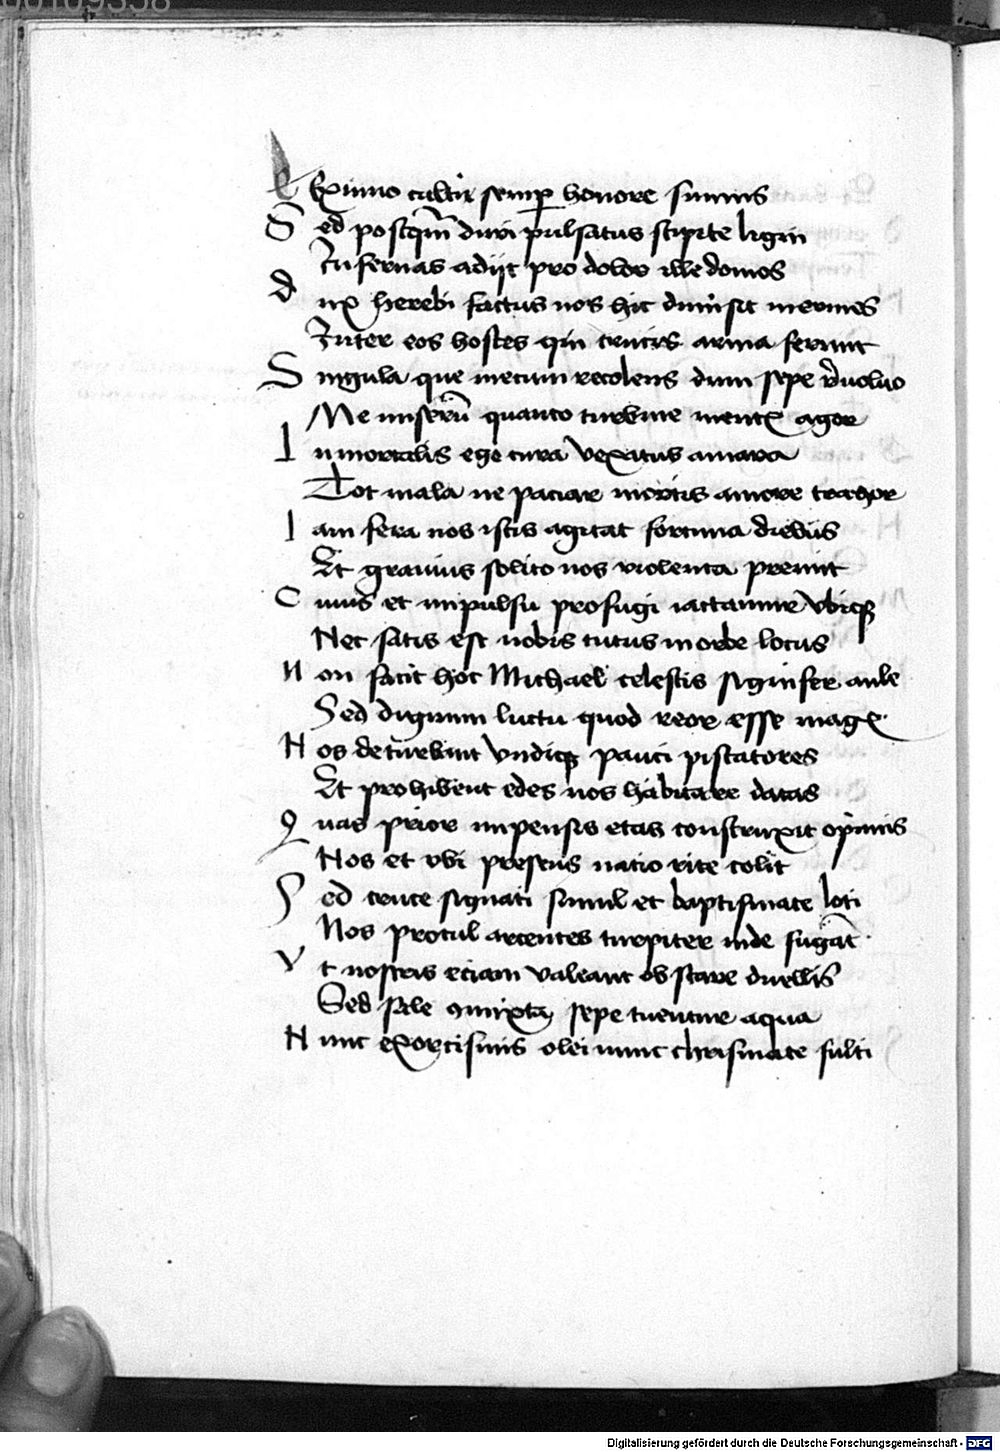 00109358
Eximio cultu semp honore sumus
Sed postqm duri pulsatus stipite ligni
Infernas adijt pro dolor ille domos
dux herebi factus nos hic dimisit inermes
Inter eos hostes qui crucis arma ferunt
Singula que mecum recolens dum sepe revoluo
Me miserū quanto turbine mentis agor
Inmortalis ego cura vexatus amara
Tot mala ne paciar mortis amore trahor
Iam fera nos istis agitat fortuna diebus
Et grauius solito nos violenta premit
Cuius et impulsu profugi iactamur vbiq
Nec satis est nobis tutus in orbe locus
Non facit hoc Michael celestis signifer aule
Sed dignum luctu quod reor esse magis
Nos deturbant vndiq pauci piscatores
Et prohibent edes nos habitare datas
Quas prior impensis etas construxit opimis
Nos et vbi presens natio rite colit
Sed cruce signati simul et baptismate loti
Nos procul arcentes turpiter inde fugāt
Vt nostris eciam valeant obstare duellis
Sed sale 9mixta sepe tuentur aqua
Nunc exorcismis olei nunc chrismate fulti
Digitalisierung gefördert durch die Deutsche Forschungsgemeinschaft - DFG